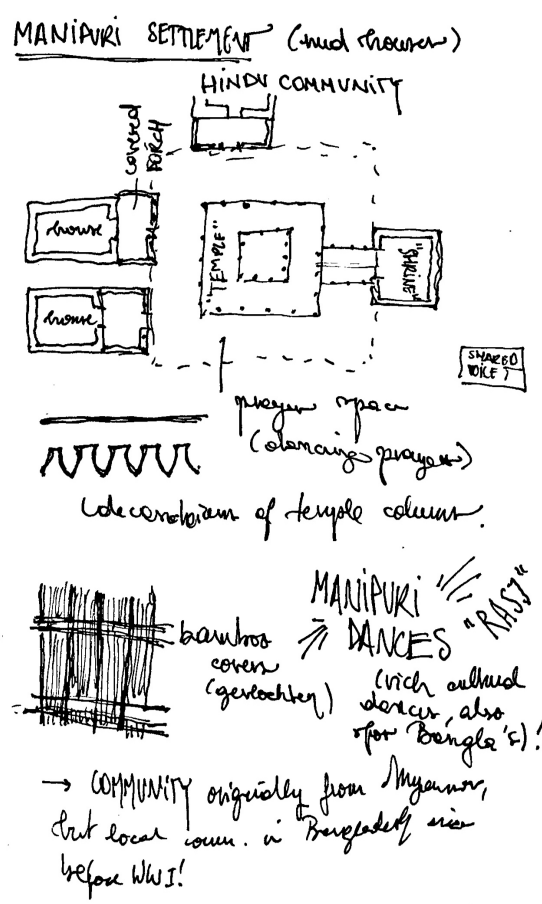 MANIPURI SETTLEMENT (mud houses)
HINDU COMMUNITY
covered
PORCH
house
"TEMPLE"
"SHRINE"
house
SHARED
prayer space
(dancing prayers)
decorations of temple columns.
MANIPURI
DANCES
"RASJ"
bamboo
covers
(gevlochten)
(rich cultural
dances, also
for Bangla's)!
→ COMMUNITY originally from Myanmar,
but local comm. in Bangladesh since
before WWI!